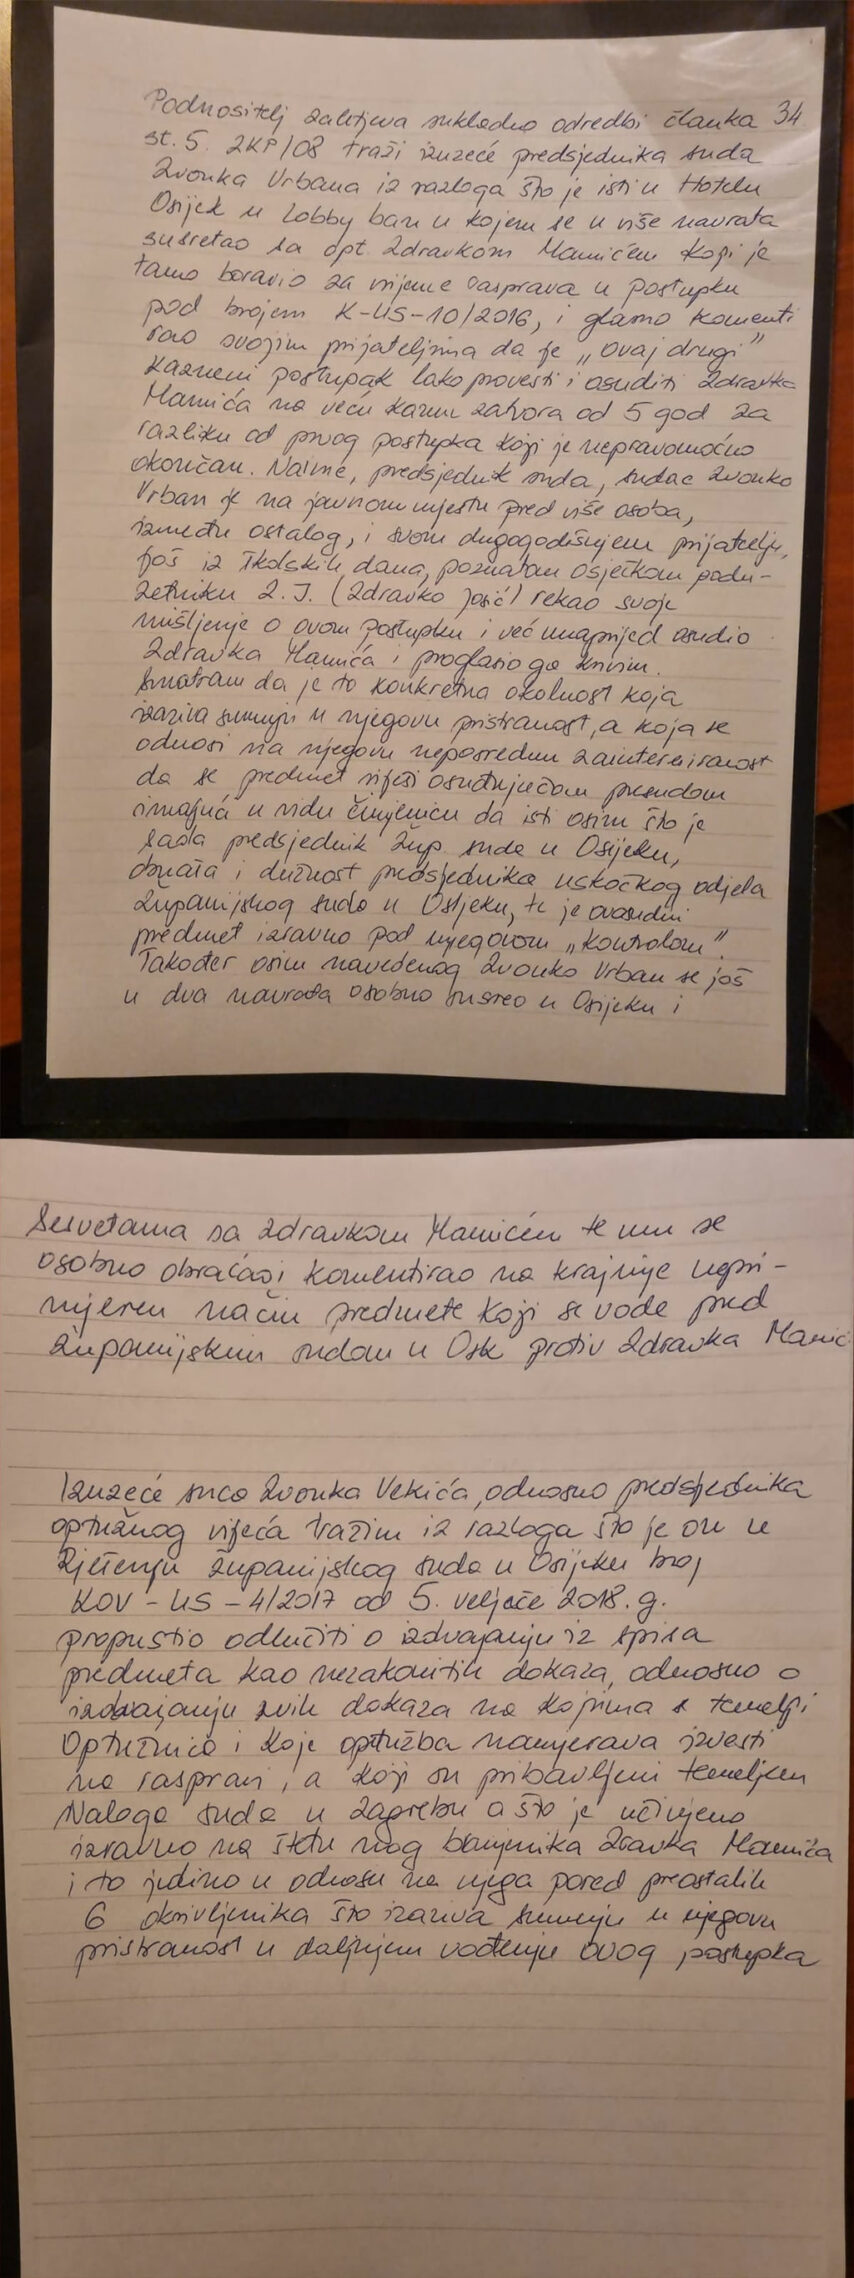 Podnositelj zahtjeva sukladno odredbi članka 34
st. 5. ZKP/08 traži izuzeće predsjednika suda
Zvonka Vrbana iz razloga što je isti u Hotelu
Osijek u Lobby baru u kojem se u više navrata
susretao sa opt. Zdravkom Mamićem koji je
tamo boravio za vrijeme rasprava u postupku
pod brojem K-US-10/2016, i glasno komenti
rao svojim prijateljima da je „ovaj drugi”
kazneni postupak lako provesti i osuditi Zdravka
Mamića na veću kaznu zatvora od 5 god za
razliku od prvog postupka koji je nepravomoćno
okončan. Naime, predsjednik suda, sudac Zvonko
Vrban je na javnom mjestu pred više osoba,
između ostalog, i svom dugogodišnjem prijatelju,
još iz školskih dana, poznatom osječkom podu-
zetniku Z. J. (Zdravko Josić) rekao svoje
mišljenje o ovom postupku i već unaprijed osudio
Zdravka Mamića i proglasio ga krivim.
Smatram da je to konkretna okolnost koja
izaziva sumnju u njegovu pristranost, a koja se
odnosi na njegovu neposrednu zainteresiranost
da se predmet riješi osuđujućom presudom
imajući u vidu činjenicu da isti osim što je
sada predsjednik Žup. suda u Osijeku,
obnaša i dužnost predsjednika uskočkog odjela
Županijskog suda u Osijeku, te je
predmet izravno pod njegovom „kontrolom”.
Također osim navedenog Zvonko Vrban se još
u dva navrata osobno susreo u Osijeku i
Sesvetama sa Zdravkom Mamićem te mu se
osobno obraćao i komentirao na krajnje nepri-
mjeren način predmete koji se vode pred
Županijskim sudom u Osk protiv Zdravka Mamić
Izuzeće suca Zvonka Vekića, odnosno predsjednika
optužnog vijeća tražim iz razloga što je on u
Rješenju Županijskog suda u Osijeku broj
KOV-US-4/2017 od 5. veljače 2018. g.
propustio odlučiti o izdvajanju iz spisa
predmeta kao nezakonitih dokaza, odnosno o
izdvajanju svih dokaza na kojima se temelji
Optužnica i koje optužba namjerava izvesti
na raspravi, a koji su pribavljeni temeljem
Naloga suda u Zagrebu a što je učinjeno
izravno na štetu mog branjenika Zravka Mamića
i to jedino u odnosu na njega pored preostalih
6 okrivljenika što izaziva sumnju u njegovu
pristranost u daljnjem vođenju ovog postupka